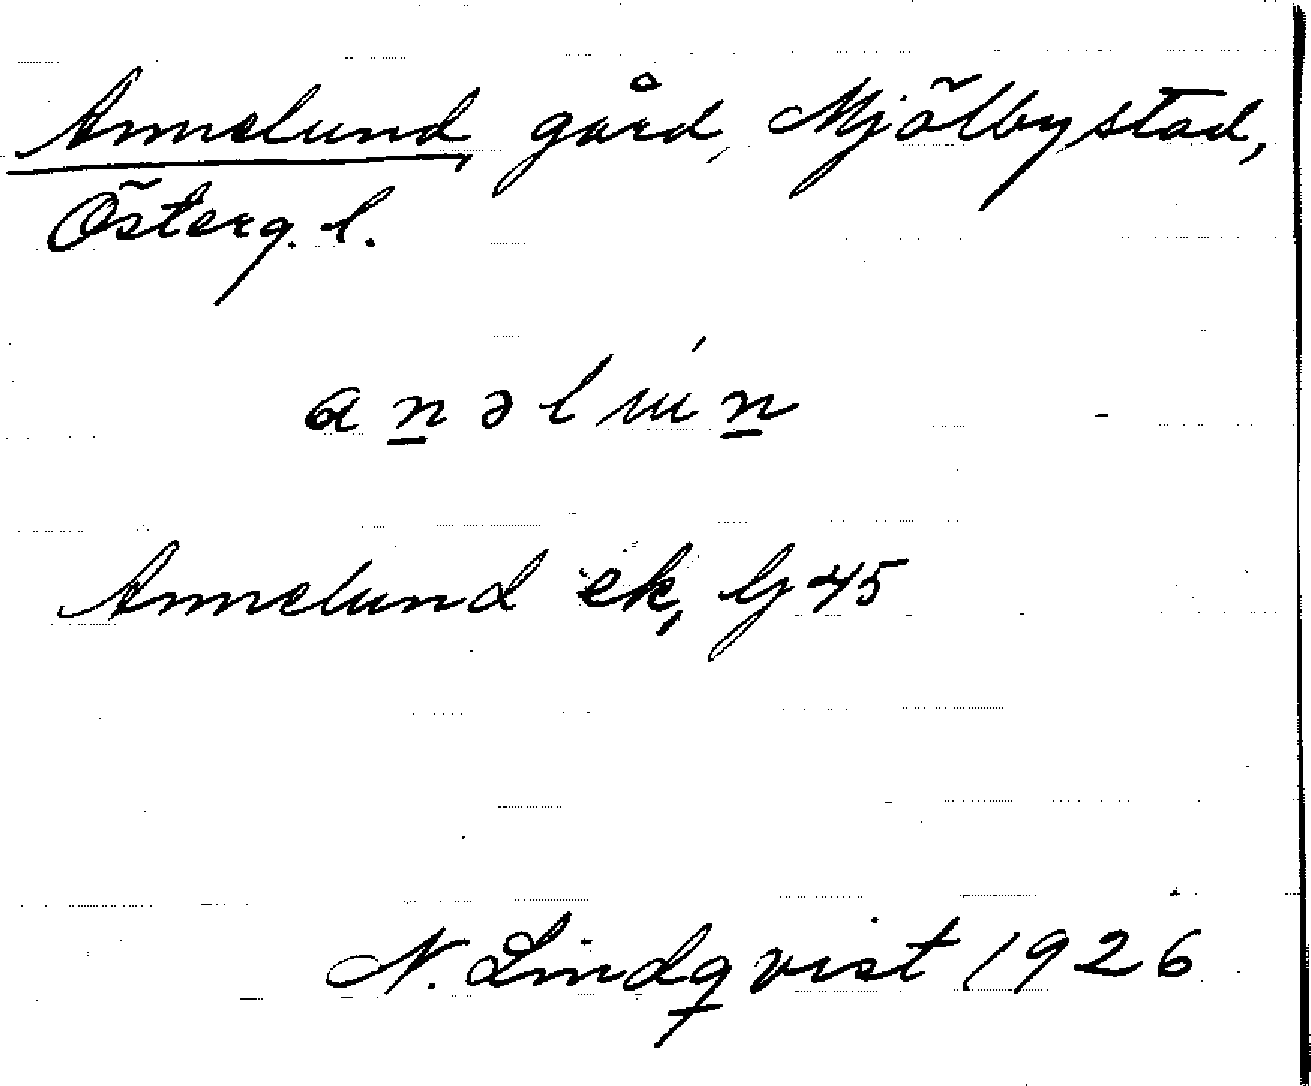 Annelund, gård, Mjölby stad,
Österg. l.
anəluń
Annelund ek, Gj 45
N. Lindqvist 1926